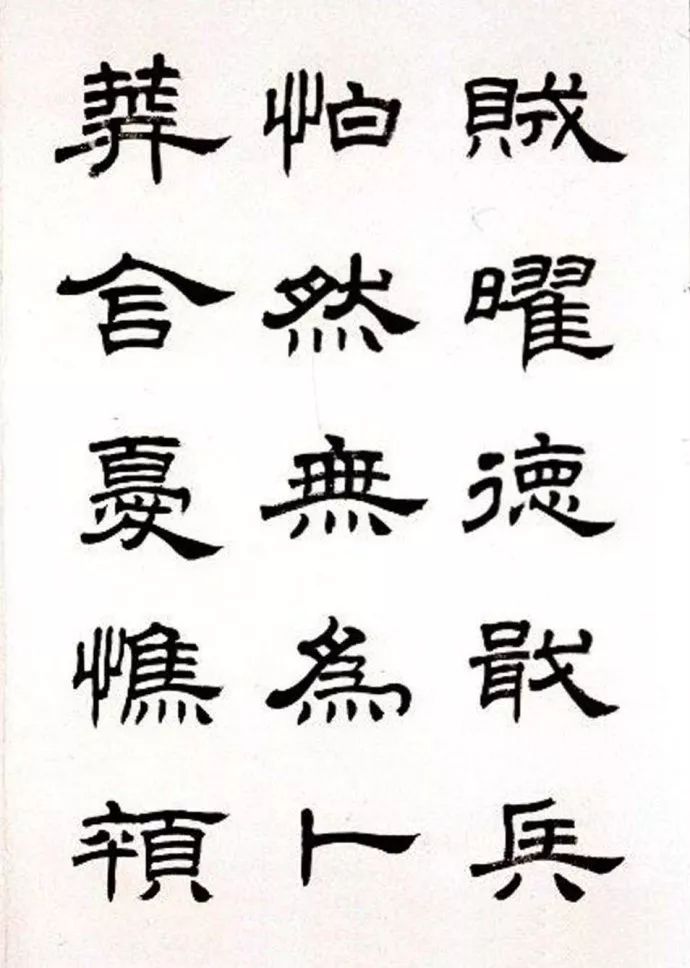 賊曜德戢兵
怕然無為卜
憂憔顇